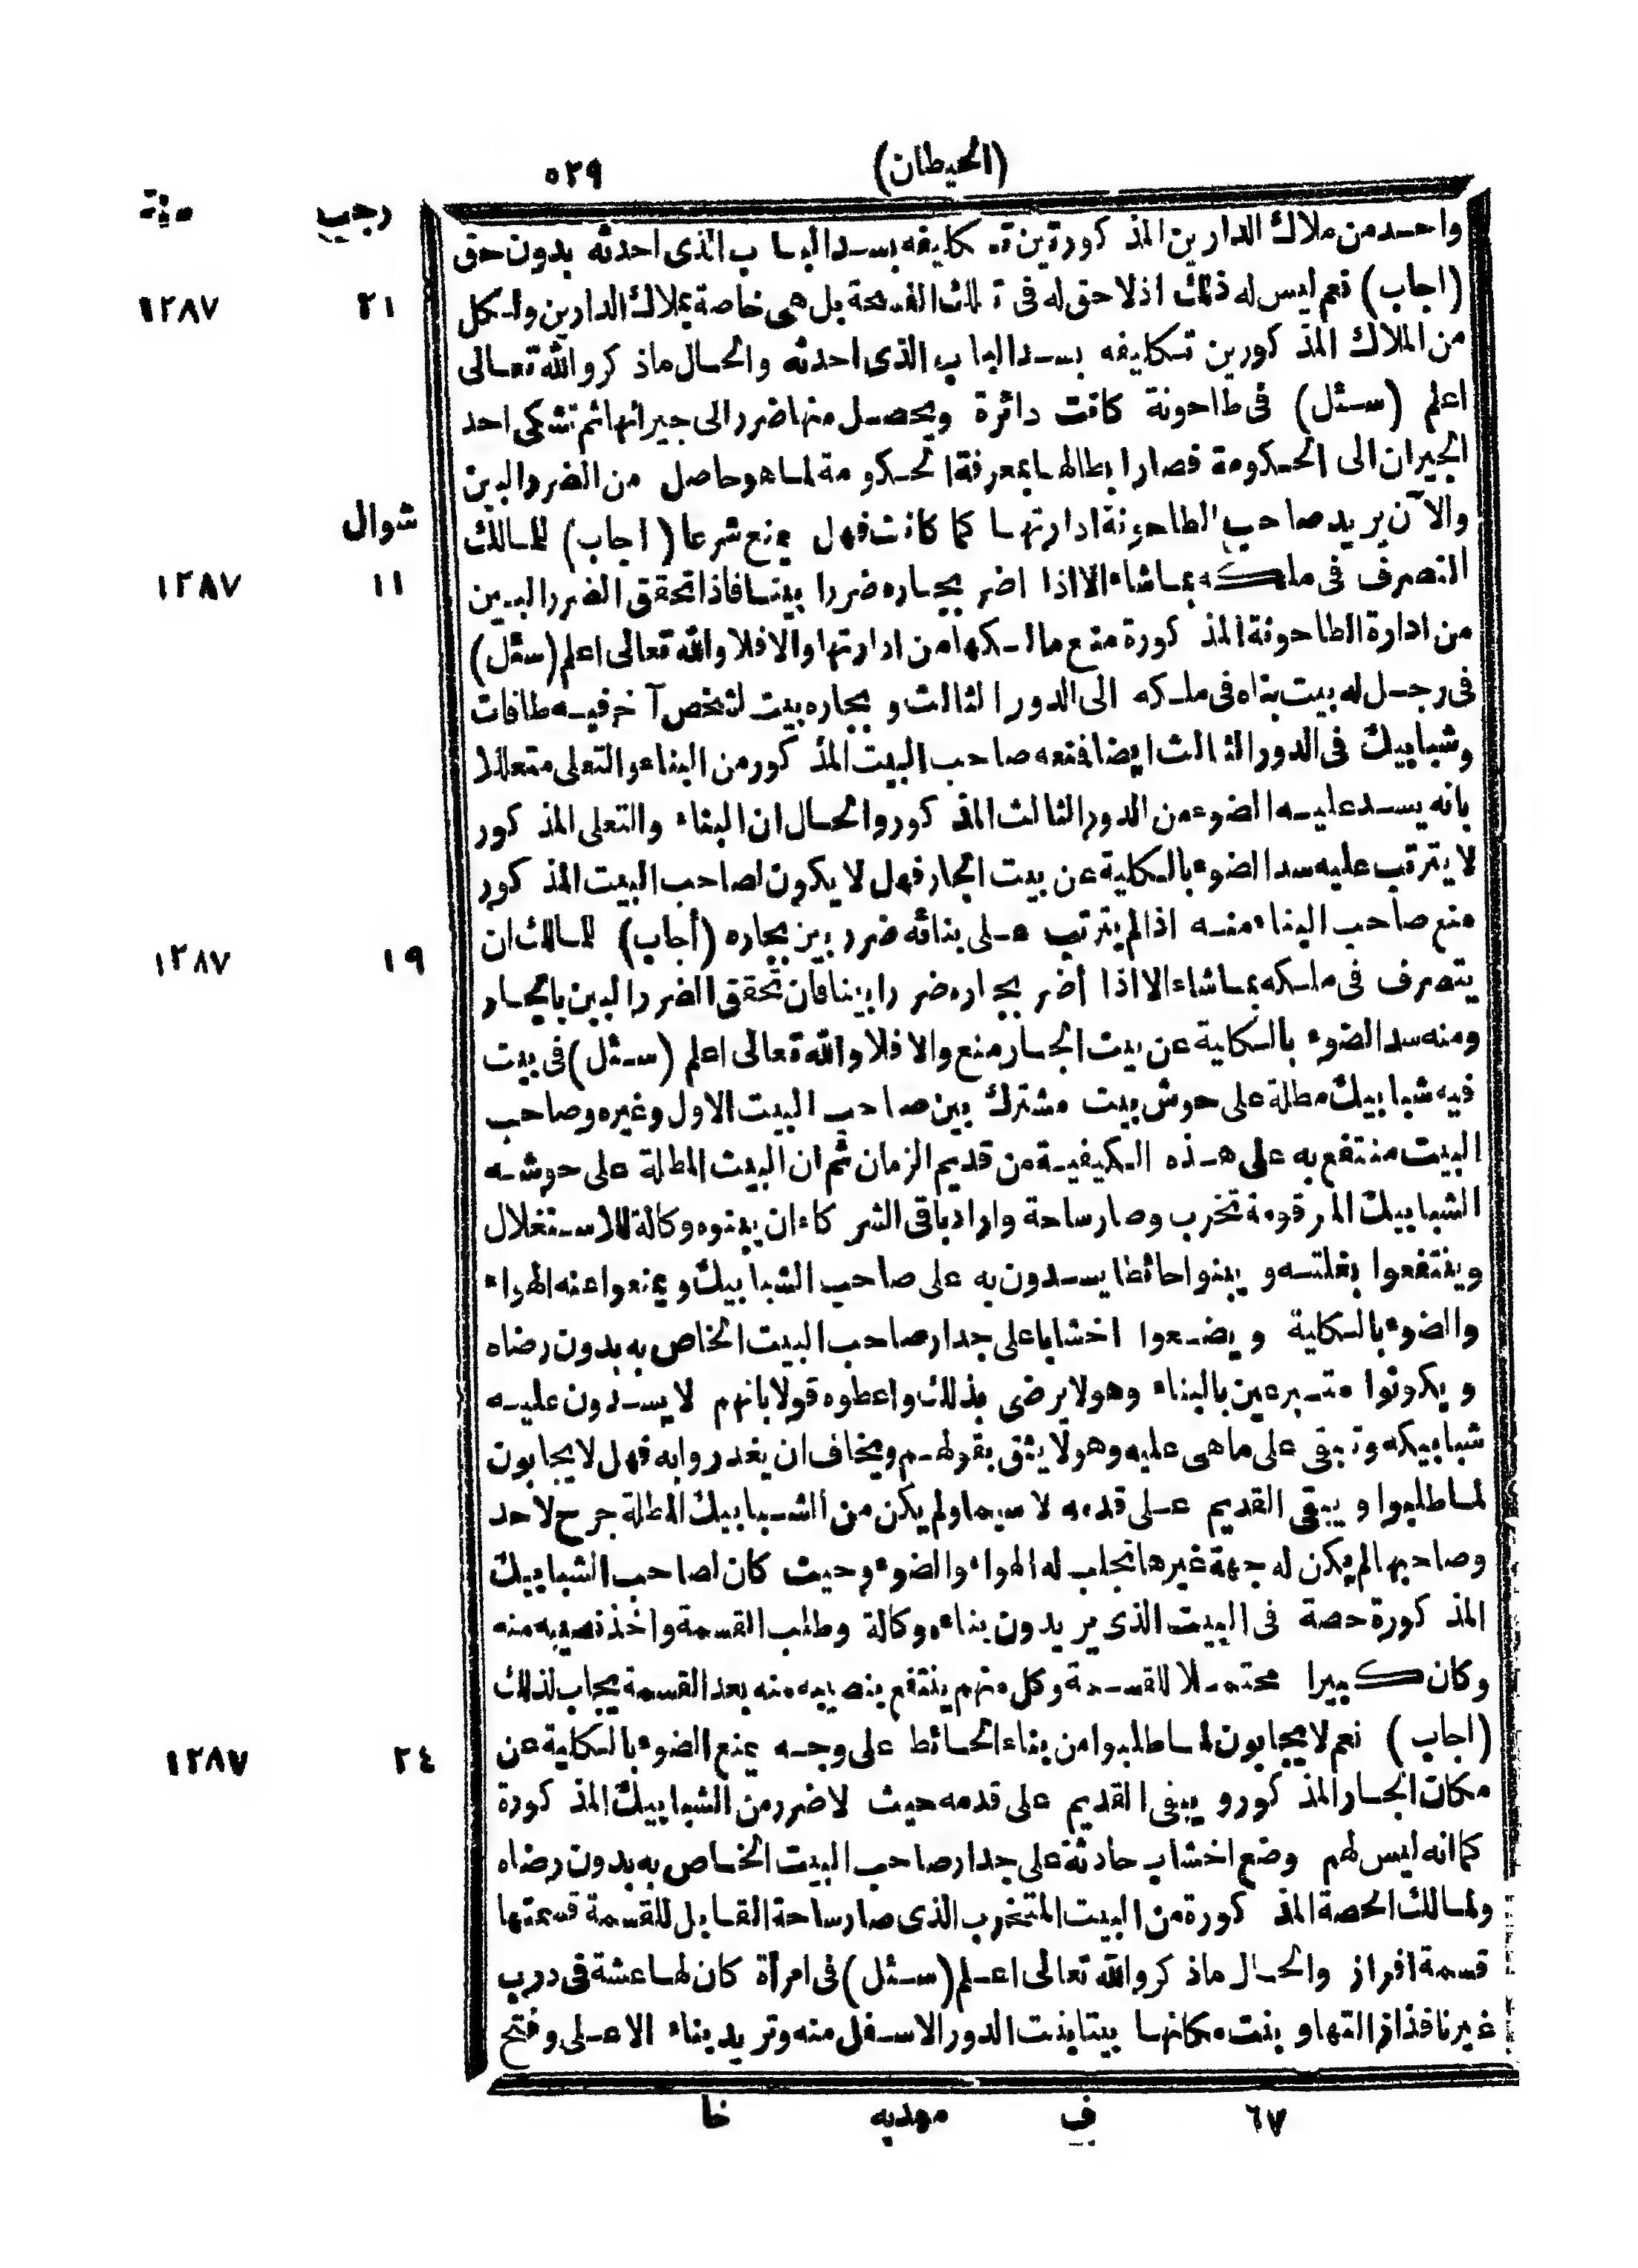 (الحيطان) ٥٢٩
رجب سنة
واحد من ملاك الدارين المذكورتين تكليفه بسد الباب الذى احدثه بدون حق
(اجاب) نعم ليس له ذلك اذلا حق له فى تلك الفسحة بل هى خاصة بملاك الدارين ولكل ٢١ ١٢٨٧
من الملاك المذكورين تكليفه بسد الباب الذى احدثه والحال ماذكر والله تعالى
اعلم (سئل) فى طاحونة كانت دائرة ويحصل منها ضرر الى جيرانها ثم تشكى احد
الجيران الى الحكومة فصار ابطالها بمعرفة الحكومة لما هو حاصل من الضرر البين
والآن يريد صاحب الطاحونة ادارتها كما كانت فهل يمنع شرعا (اجاب) للمالك شوال
التصرف فى ملكه بما شاء الا اذا اضر بجاره ضررا بينا فاذا تحقق الضرر البين ١١ ١٢٨٧
من ادارة الطاحونة المذكورة منع مالكها من ادارتها والا فلا والله تعالى اعلم (سئل)
فى رجل له بيت بناه فى ملكه الى الدور الثالث و بجاره بيت لشخص آخر فيه طاقات
وشبابيك فى الدور الثالث ايضا فمنعه صاحب البيت المذكور من البناء والتعلى متعللا
بانه يسد عليه الضوء من الدور الثالث المذكور والحال ان البناء والتعلى المذكور
لا يترتب عليه سد الضوء بالكلية عن بيت الجار فهل لا يكون لصاحب البيت المذكور
منع صاحب البناء منه اذا لم يترتب على بنائه ضرر بين بجاره (أجاب) للمالك ان ١٩ ١٢٨٧
يتصرف فى ملكه بما شاء الا اذا أضر بجاره ضررا بينا فان تحقق الضرر البين بالجار
ومنه سد الضوء بالكلية عن بيت الجار منع والا فلا والله تعالى اعلم (سئل) فى بيت
فيه شبابيك مطلة على حوش بيت مشترك بين صاحب البيت الاول وغيره وصاحب
البيت منتفع به على هذه الكيفية من قديم الزمان ثم ان البيت المطلة على حوشه
الشبابيك المرقومة تخرب وصار ساحة واراد باقى الشركاء ان يبنوه وكالة للاستغلال
وينتفعوا بغلته و يبنوا حائطا يسدون به على صاحب الشبابيك ويمنعوا عنه الهواء
والضوء بالكلية ويضعوا اخشابا على جدار صاحب البيت الخاص به بدون رضاه
ويكونوا متبرعين بالبناء وهو لا يرضى بذلك واعطوه قولا بانهم لا يسدون عليه
شبابيكه وتبقى على ماهى عليه وهو لا يثق بقولهم ويخاف ان يغدروا به فهل لا يجابون
لما طلبوا ويبقى القديم على قدمه لا سيما ولم يكن من الشبابيك المطلة جرح لاحد
وصاحبها لم يكن له جهة غيرها تجلب له الهواء والضوء وحيث كان لصاحب الشبابيك
المذكورة حصة فى البيت الذى يريدون بناءه وكالة وطلب القسمة واخذ نصيبه منه
وكان كبيرا محتملا للقسمة وكل منهم ينتفع بنصيبه منه بعد القسمة يجاب لذلك
(اجاب) نعم لا يجابون لما طلبوا من بناء الحائط على وجه يمنع الضوء بالكلية عن ٢٤ ١٢٨٧
مكان الجار المذكور و يبقى القديم على قدمه حيث لا ضرر من الشبابيك المذكورة
كما انه ليس لهم وضع اخشاب حادثة على جدار صاحب البيت الخاص به بدون رضاه
ولمالك الحصة المذكورة من البيت المتخرب الذى صار ساحة القابل للقسمة قسمتها
قسمة افراز والحال ماذكر والله تعالى اعلم (سئل) فى امرأة كان لها عشة فى درب
غير نافذ ازالتها و بنت مكانها بيتا بنت الدور الاسفل منه وتريد بناء الاعلى وفتح
٦٧ ف مهديه خا